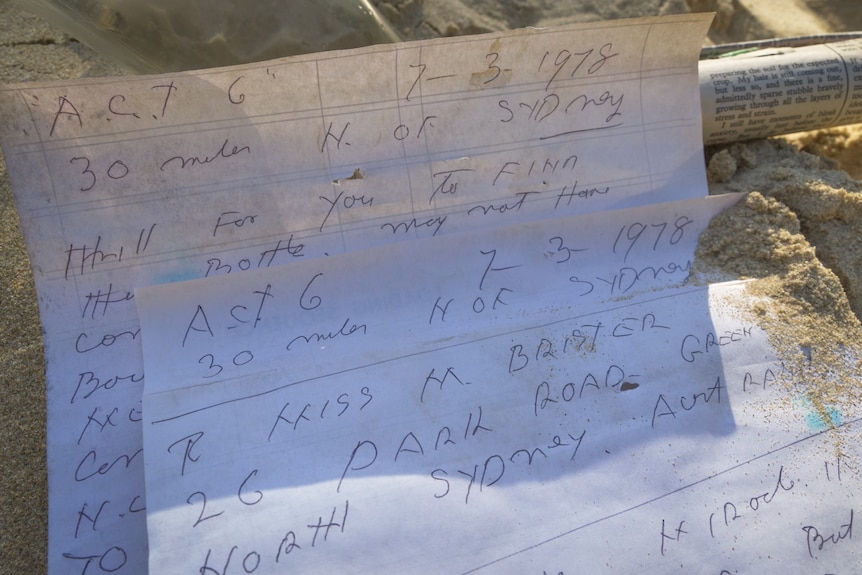 "A.C.T 6" 7-3-1978
30 miles N. OF SYDney
thrill For You To FIND
the Bottle. may not Have
Con
Bou
Con
N.C
TO
ACT 6 7-3-1978
30 miles N OF SYDney
MISS M. BRISTER
26 PARK ROAD- GREEN
NORTH SYDney. Aust RA
But
preparing the soil for the expected
crop. My hair is still coming out
but less so, and there is a fine,
admittedly sparse stubble bravely
growing through all the layers of
stress and strain.